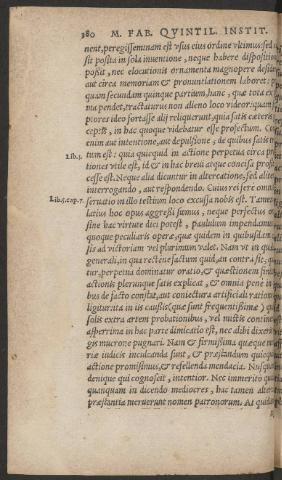 380 M. FAB. QVINTIL. INSTIT.
nent, peregissem nam est vsus eius ordine vltimus: sed
sit posita in sola inuentione, neque habere dispositio
posit, nec elocutionis ornamenta magnopere deside
aut circa memoriam & pronuntiationem laboret:
quàm secundam quinque partium, hanc, quæ tota ex
ma pendet, tractaturus non alieno loco videor: quam
ptores ideo fortasse alij reliquerunt, quia satis cæteris
ceptis, in hac quoque videbatur esse prospectum. Co
enim aut intentione, aut depulsione; de quibus satis tra
Lib.5. tum est: quia quicquid in actione perpetua circa pr
tiones vtile est, id & in hac breui atque concisa prosi
cesse est. Neque alia dicuntur in altercatione, sed aliter
interrogando, aut respondendo. Cuius rei fere omnis
Lib.5.cap.7. seruatio in illo testium loco excussa nobis est. Tamen
latius hoc opus aggressi sumus, neque perfectus
sine hac virtute dici potest, paululum impendamus
quoque peculiaris operæ, quæ quidem in quibusdam
sis ad victoriam vel plurimum valet. Nam vt in qua
generali, in qua rectène factum quid, an contrà sit:
tur, perpetua dominatur oratio, & quæstionem fini
actionis plerunque satis explicat, & omnia penè in
bus de facto constat, aut coniectura artificiali ratione
ligitur: ita in iis causis (quæ sunt frequentissimæ) quæ
solis extra artem probationibus, vel mistis contine
asperrima in hac parte dimicatio est, nec alibi dixeris
gis mucrone pugnari. Nam & firmissima quæque
riæ iudicis inculcanda sunt, & præstandum quicqu
actione promisimus, & refellenda mendacia. Nusquam
denique qui cognoscit, intentior. Nec immeritò qui
quanquam in dicendo mediocres, hac tamen alter
præstantia meruerunt nomen patronorum. At quida